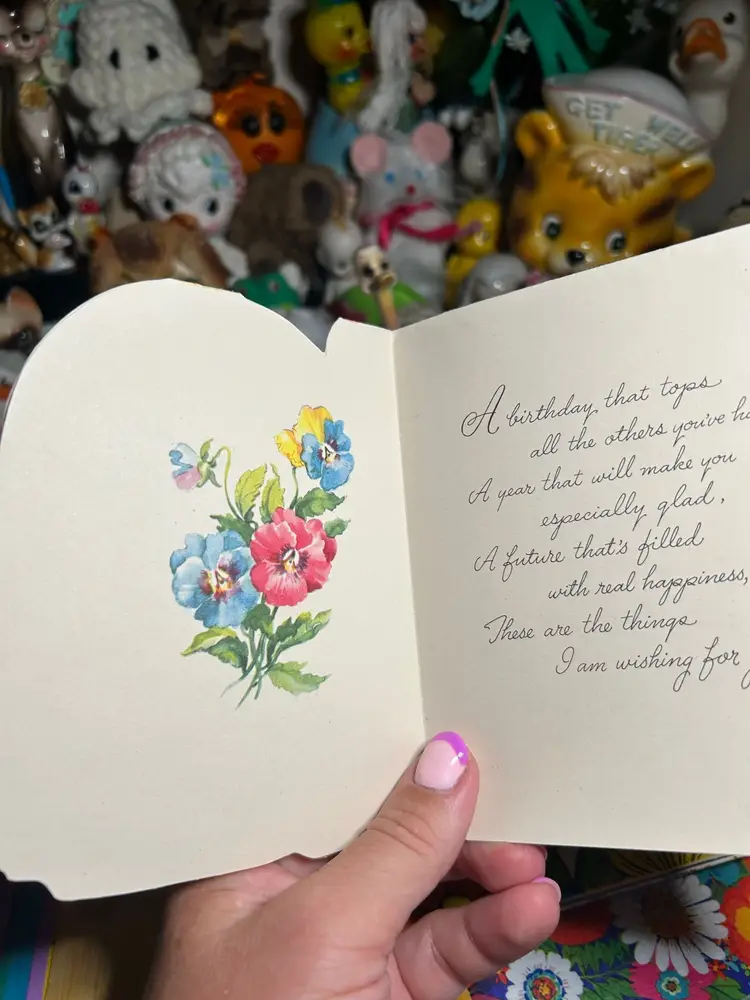 GET WELL
TIGER
A birthday that tops
all the others you've
A year that will make you
especially glad,
A future that's filled
with real happiness,
These are the things
I am wishing for